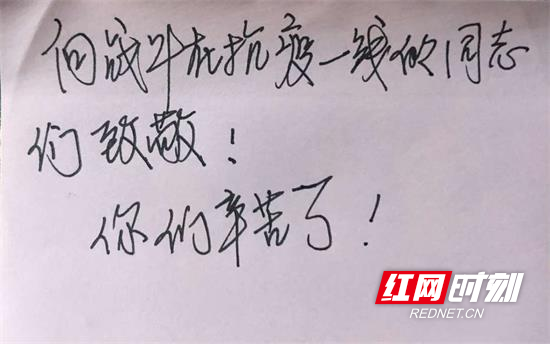 向战斗在抗疫一线的同志
们致敬！
你们辛苦了！
红网时刻
REDNET.CN